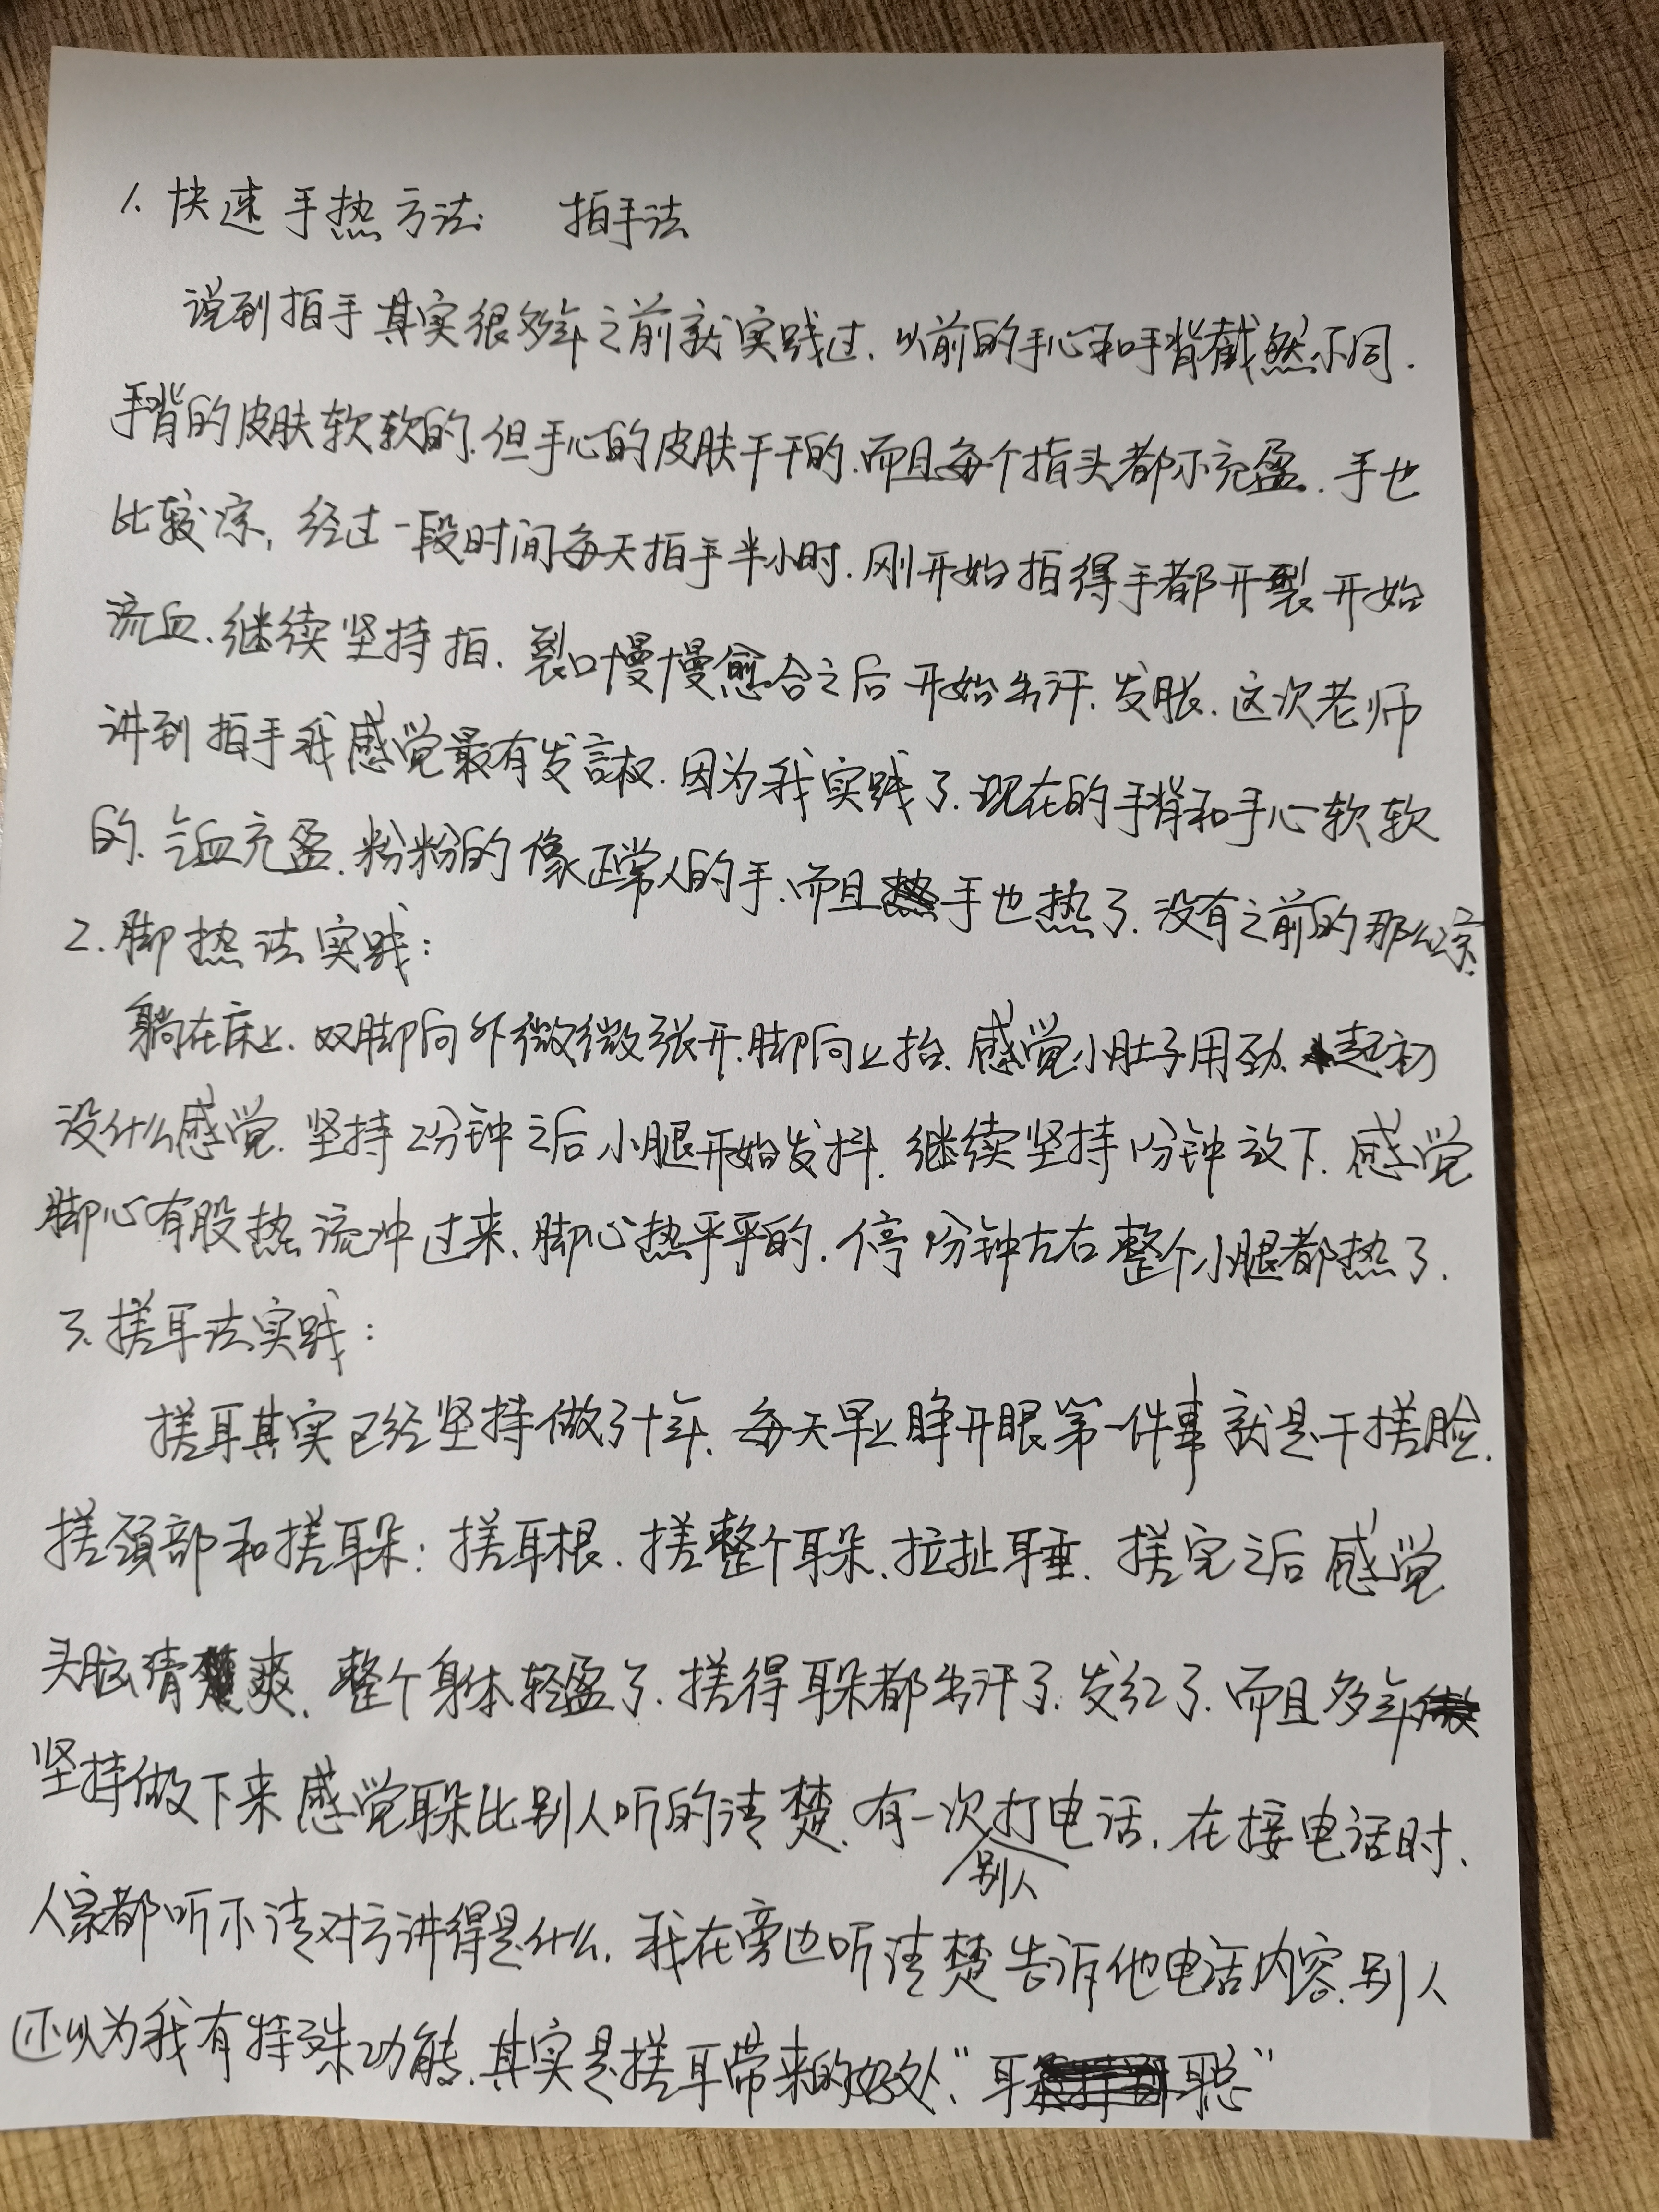 1. 快速手热方法: 拍手法
说到拍手其实很多年之前就实践过. 以前的手心和手背截然不同.
手背的皮肤软软的. 但手心的皮肤干干的. 而且每个指头都不充盈. 手也
比较凉, 经过一段时间每天拍手半小时. 刚开始拍得手都开裂开始
流血. 继续坚持拍. 裂口慢慢愈合之后开始出汗. 发胀. 这次老师
讲到拍手我感觉最有发言权. 因为我实践了. 现在的手背和手心软软
的. 气血充盈. 粉粉的像正常人的手. 而且手也热了. 没有之前的那么凉.
2. 脚热法实践:
躺在床上. 双脚向外微微张开. 脚向上抬. 感觉小肚子用劲. 起初
没什么感觉. 坚持2分钟之后小腿开始发抖. 继续坚持1分钟放下. 感觉
脚心有股热流冲过来、脚心热乎乎的. 停1分钟左右整个小腿都热了.
3. 搓耳法实践:
搓耳其实已经坚持做了十年. 每天早上睁开眼第一件事就是干搓脸.
搓颈部和搓耳朵: 搓耳根. 搓整个耳朵. 拉扯耳垂. 搓完之后感觉
头脑清爽. 整个身体轻盈了. 搓得耳朵都出汗了. 发红了. 而且多年
坚持做下来感觉耳朵比别人听的清楚. 有一次别人打电话. 在接电话时.
人家都听不清对方讲得是什么. 我在旁边听清楚告诉他电话内容. 别人
还以为我有特殊功能. 其实是搓耳带来的好处. "耳聪"